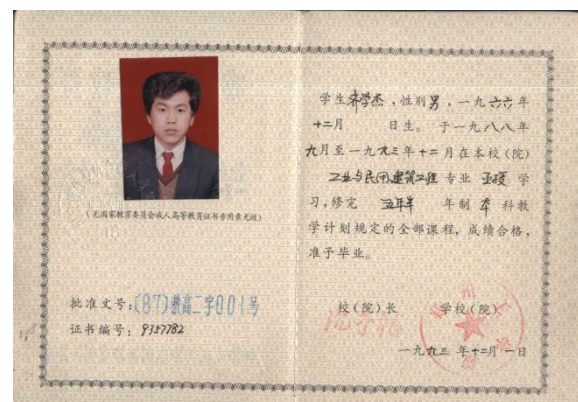 (无国家教育委员会成人高等教育证书专用章无效)
批准文号:(87)教高二字001号
证书编号:9357782
学生齐学杰,性别男,一九六六年
十二月 日生。于一九八八年
九月至一九九三年十二月在本校(院)
工业与民用建筑工程专业 学
习,修完 五年半 年制 本 科教
学计划规定的全部课程,成绩合格,
准予毕业。
校(院)长 学校(院)
一九九三年十二月一日